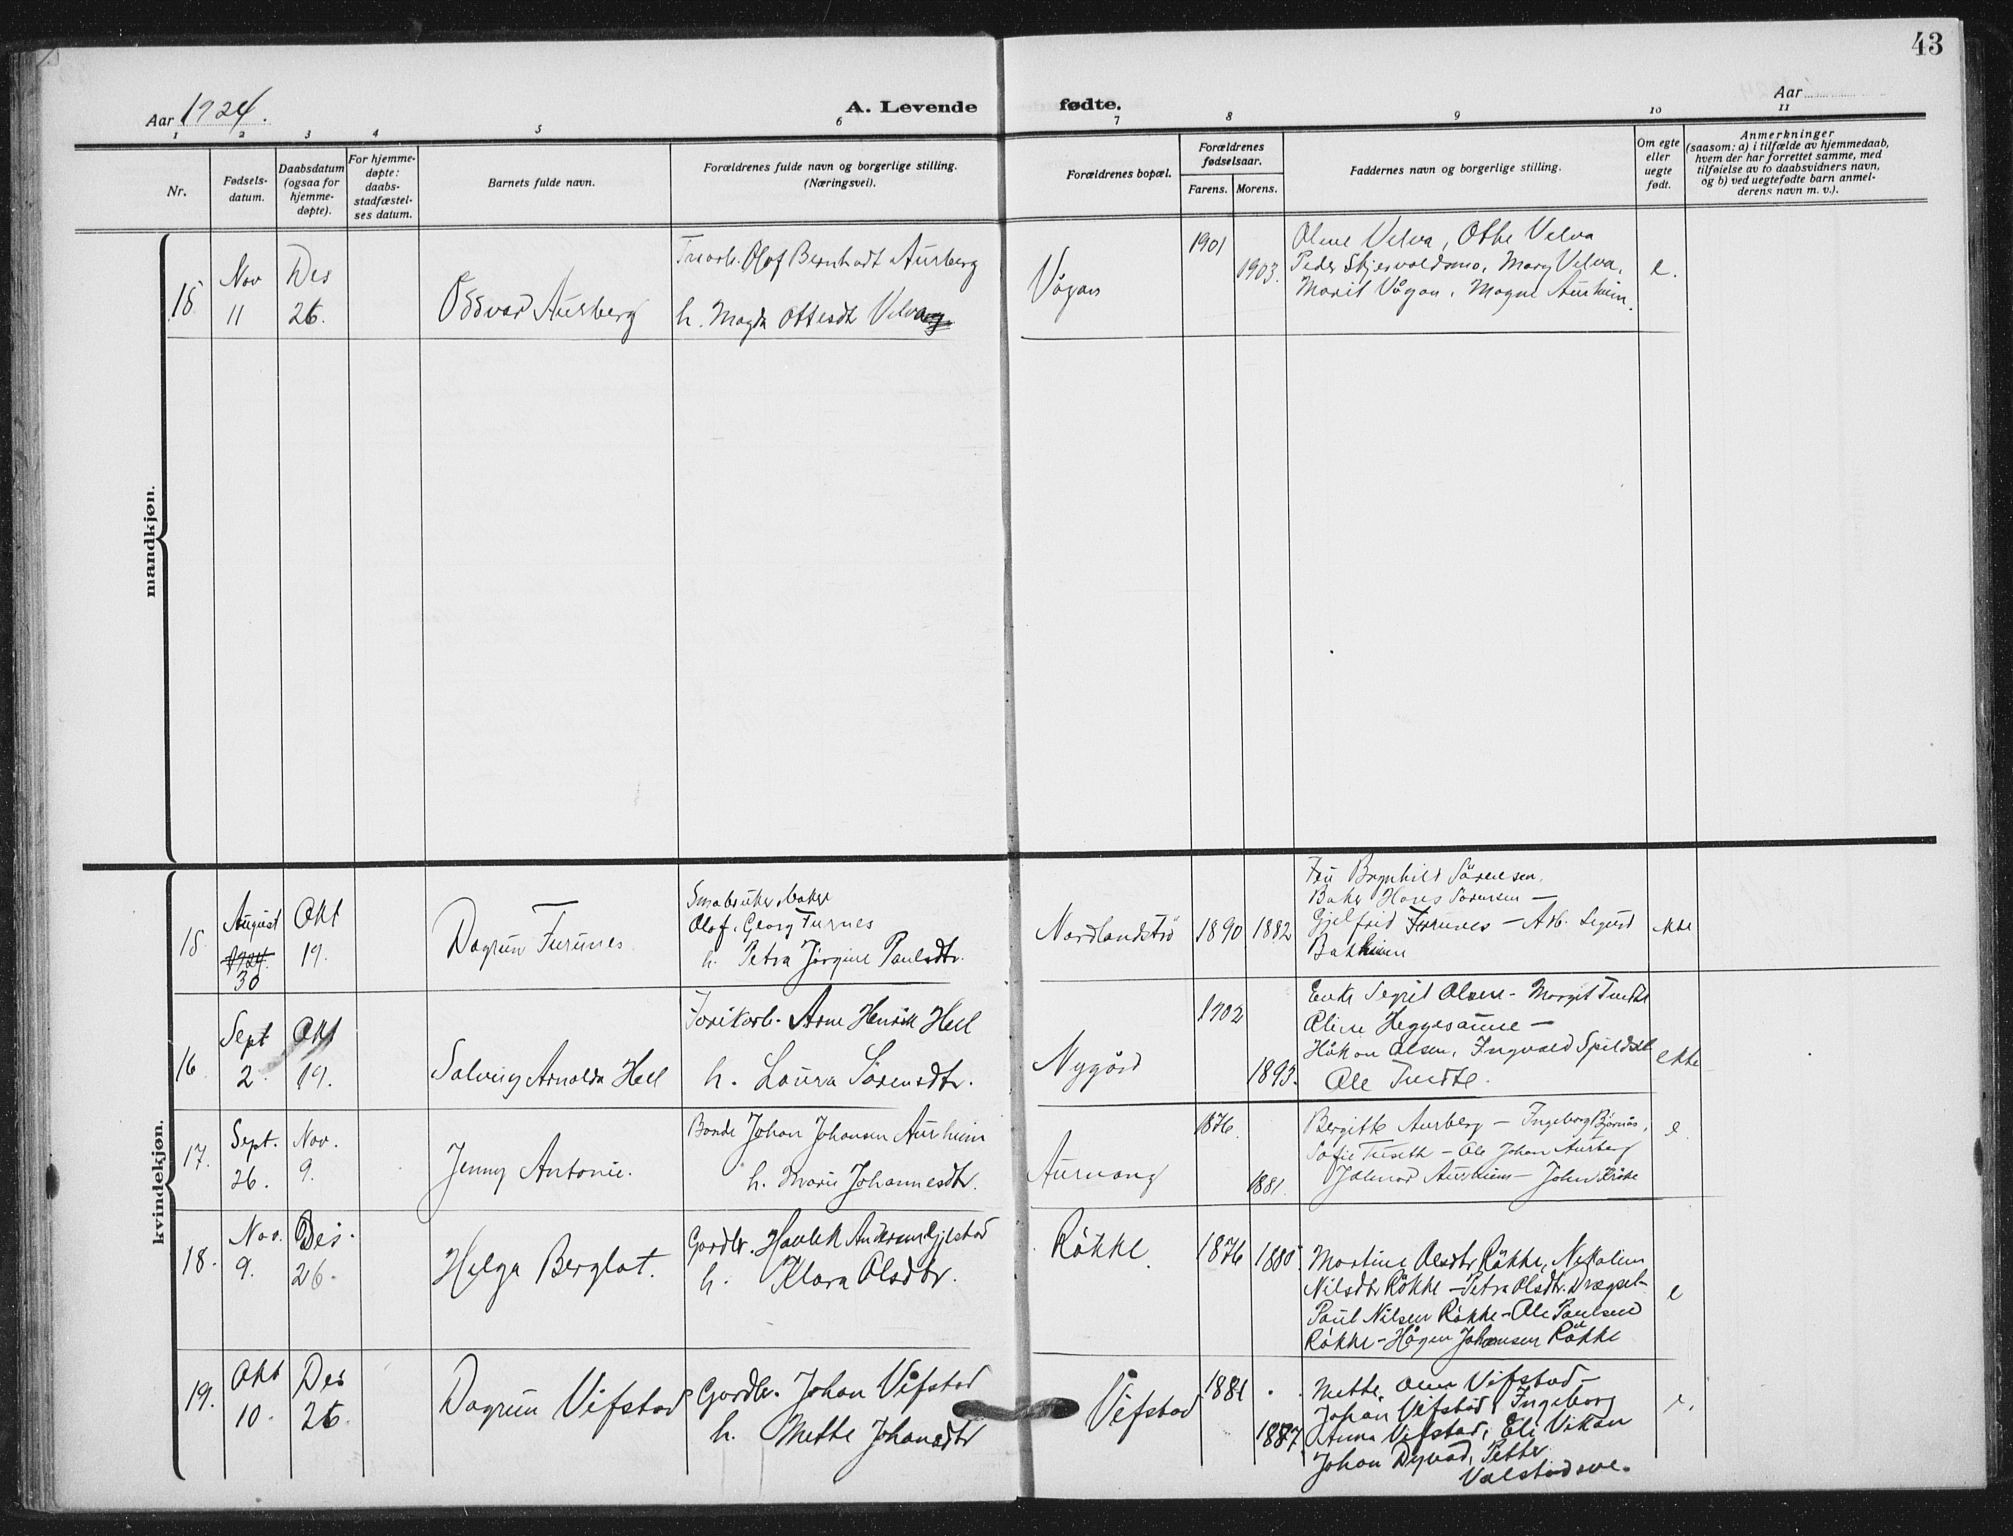 43
Aar 1924.
A. Levende fødte.
Aar
1 2 3 4 5 6 7 8 9 10 11
Nr.
Fødsels-
datum.
Daabsdatum
(ogsaa for
hjemme-
døpte).
For hjemme-
døpte:
daabs-
stadfæstel-
ses datum.
Barnets fulde navn.
Forældrenes fulde navn og borgerlige stilling.
(Næringsvei).
Forældrenes bopæl.
Forældrenes
fødselsaar.
Farens. Morens.
Faddernes navn og borgerlige stilling.
Om egte
eller
uegte
født.
Anmerkninger
(saasom: a) i tilfælde av hjemmedaab,
hvem der har forrettet samme, med
tilføielse av to daabsvidners navn,
og b) ved uegtefødte barn anmel-
derens navn m. v.).
mandkjøn.
15
Nov
11
Des
26.
Oddvar Aursberg
Olof Bernhadt Aursberg
h. Magda Ottesdtr Velva
Vågan
1901
1903.
Oline Velva, Otte Velva
Peder Skjervoldsmo, Mary Velva,
Marit Vågan, Magne Aurheim.
e.
kvindekjøn.
15
August
1924.
30
Okt
19.
Dagrun Furunes
Olof. Georg Furnes
h. Petra Jörgine Paulsdtr.
Nordlandströ
1890 1882
Fru Brynhild Sörensen.
Baker Hans Sörensen —
Gjelfrid Furunes — Arb. Sigurd
Bakheim
ekte
16.
Sept
2.
Okt
19.
Solveig Arnolda Hell
Arne Henrik Hell
h. Laura Sörensdtr.
Nygård
1902
1893.
Enke Sigrid Olsen - Margit
Oline Heggesaune —
Håkon Olsen, Ingvald
Ole
ekte
17.
Sept.
26.
Nov.
9.
Jenny Antonie.
Bonde Johan Johansen Aurheim
h. Marie Johannesdtr.
Aurvang
1876.
1881.
Bergitte Aursberg — Ingeborg Bjørnås,
Sofie Tuseth — Ole Johan Aursberg
Hjalmar Aurheim — John
e.
18.
Nov.
9.
Des.
26.
Helga Berglot.
Gardbr. Havlek Andersen Gjelstad
h. Klara Olsdtr.
Røkke.
1876 1880
Martine Olsdtr Røkke, Nikoline
Nilsdtr Røkke — Petra Olsdtr. Drogset
Paul Nilsen Røkke — Ole Paulsen
Røkke — Hågen Johansen Røkke
e
19.
Okt
10.
Des
26.
Dagrun Vifstad
Gardbr. Johan Vifstad
h. Mette Johansdtr
Vifstad
1881
1887.
Mette, Oline Vifstad —
Johan Vifstad, Ingeborg
Anna Vifstad, Eli Vikan
Johan Dyvad, Petter
Valstadsve.
e.